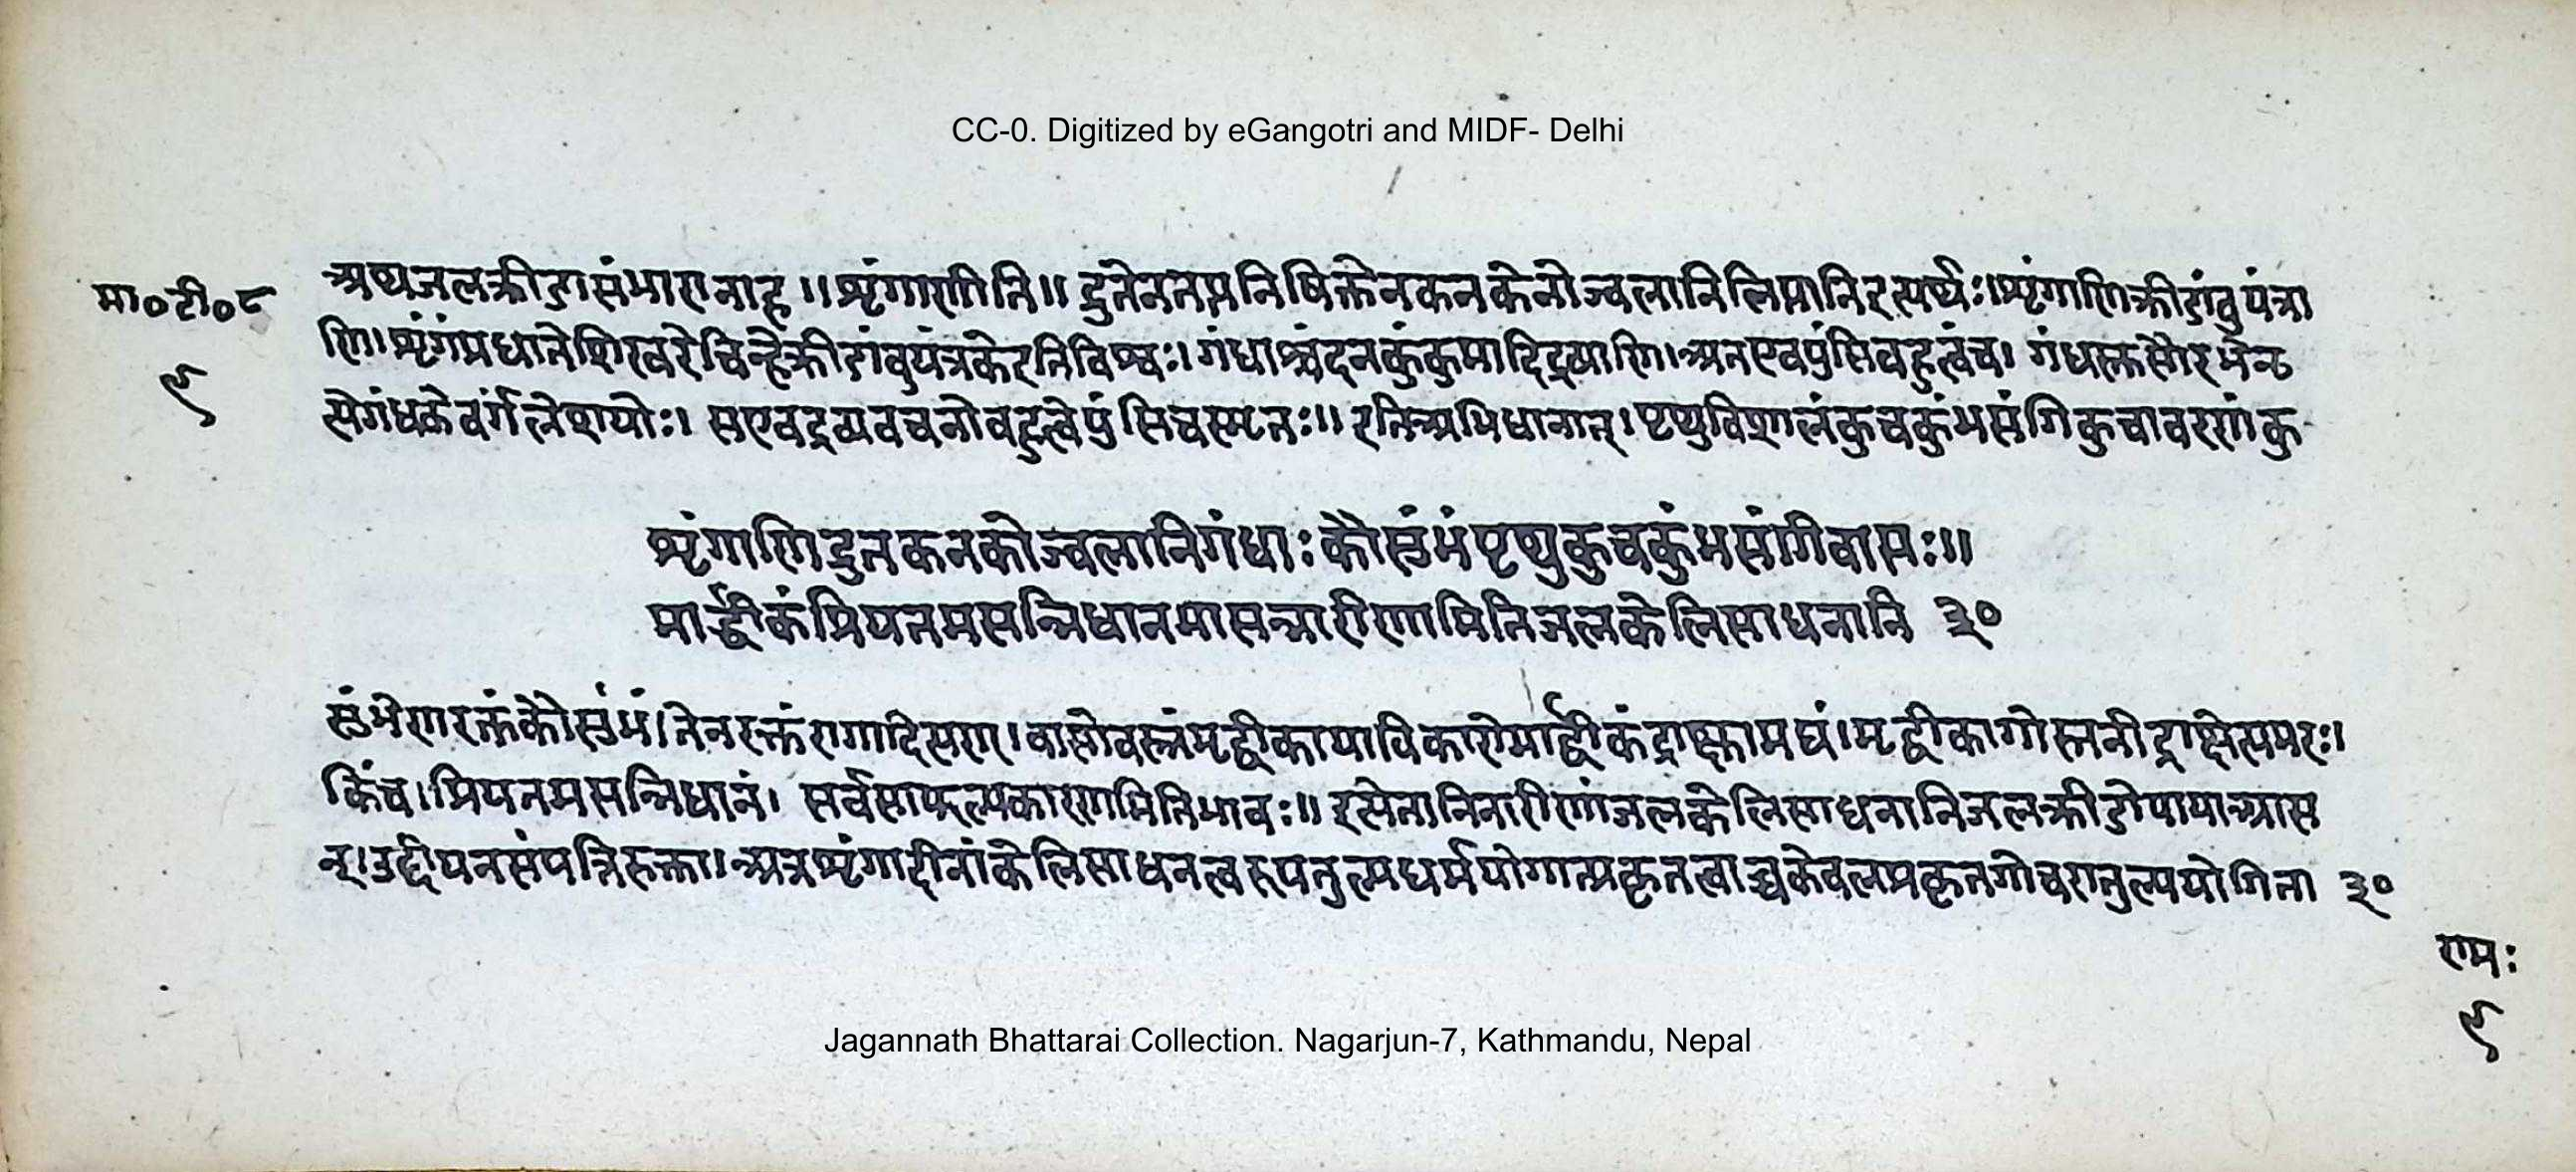 CC-0. Digitized by eGangotri and MIDF- Delhi
मा० टी० ८
अथ जलक्रीडासंभारानाह ॥ शृंगाणीति ॥ द्रुतेन तप्तनिषिक्तेन कनकेनोज्वलानि लिप्तानि इत्यर्थः । शृंगाणि क्रीडांबुयंत्रा
९
णि । शृंगं प्रधाने शिखरे चिन्हे क्रीडांबुयंत्रके इति विश्वः । गंधाश्चंदनकुंकुमादिद्रव्याणि । अत एव पुंसि बहुत्वं च । गंधस्तु सौरभे नृ
त्ये गंधके वर्गलेशयोः । स एव द्रव्यवचनो बहुत्वे पुंसि च स्मृतः ॥ इति अभिधानात् । पृथु विशालं कुचकुंभसंगि कुचावरणं कु
शृंगाणि द्रुतकनकोज्वलानि गंधाः कौसुंभं पृथुकुचकुंभसंगि वासः ॥
मार्द्वीकं प्रियतमसन्निधानमासन्नारीणामिति जलकेलिसाधनानि ३०
सुंभेण रक्तं कौसुंभं । तेन रक्तं रागादित्यण् । वासो वस्त्रं मृद्वीकाया विकारो मार्द्वीकं द्राक्षामद्यं । मृद्वीका गोस्तनी द्राक्षेत्यमरः ।
किंच । प्रियतमसन्निधानं । सर्वसाफल्यकारणमिति भावः ॥ इत्येतानि नारीणां जलकेलिसाधनानि जलक्रीडोपाया आस
न् । उद्दीपनसंपत्तिरुक्ता । अत्र शृंगादीनां केलिसाधनत्वरूपतुल्यधर्मयोगात्प्रकृतत्वाच्च केवलप्रकृतगोचरा तुल्ययोगिता ३०
रामः
९
Jagannath Bhattarai Collection. Nagarjun-7, Kathmandu, Nepal